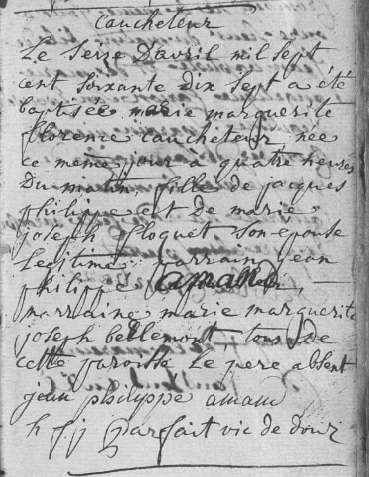 Caucheteur
Le Seize D'avril mil sept
cent soixante dix sept a été
baptisée marie marguerite
florence caucheteur née
ce meme jour a quatre heures
Du matin, fille de jacques
philippe et de marie
joseph floquet son epouse
Legitime. parrain jean
philippe amand,
marraine marie marguerite
joseph bellemont, tous de
cette paroisse Le pere absent
jean philyppe amam
h f j parfait vic de dour